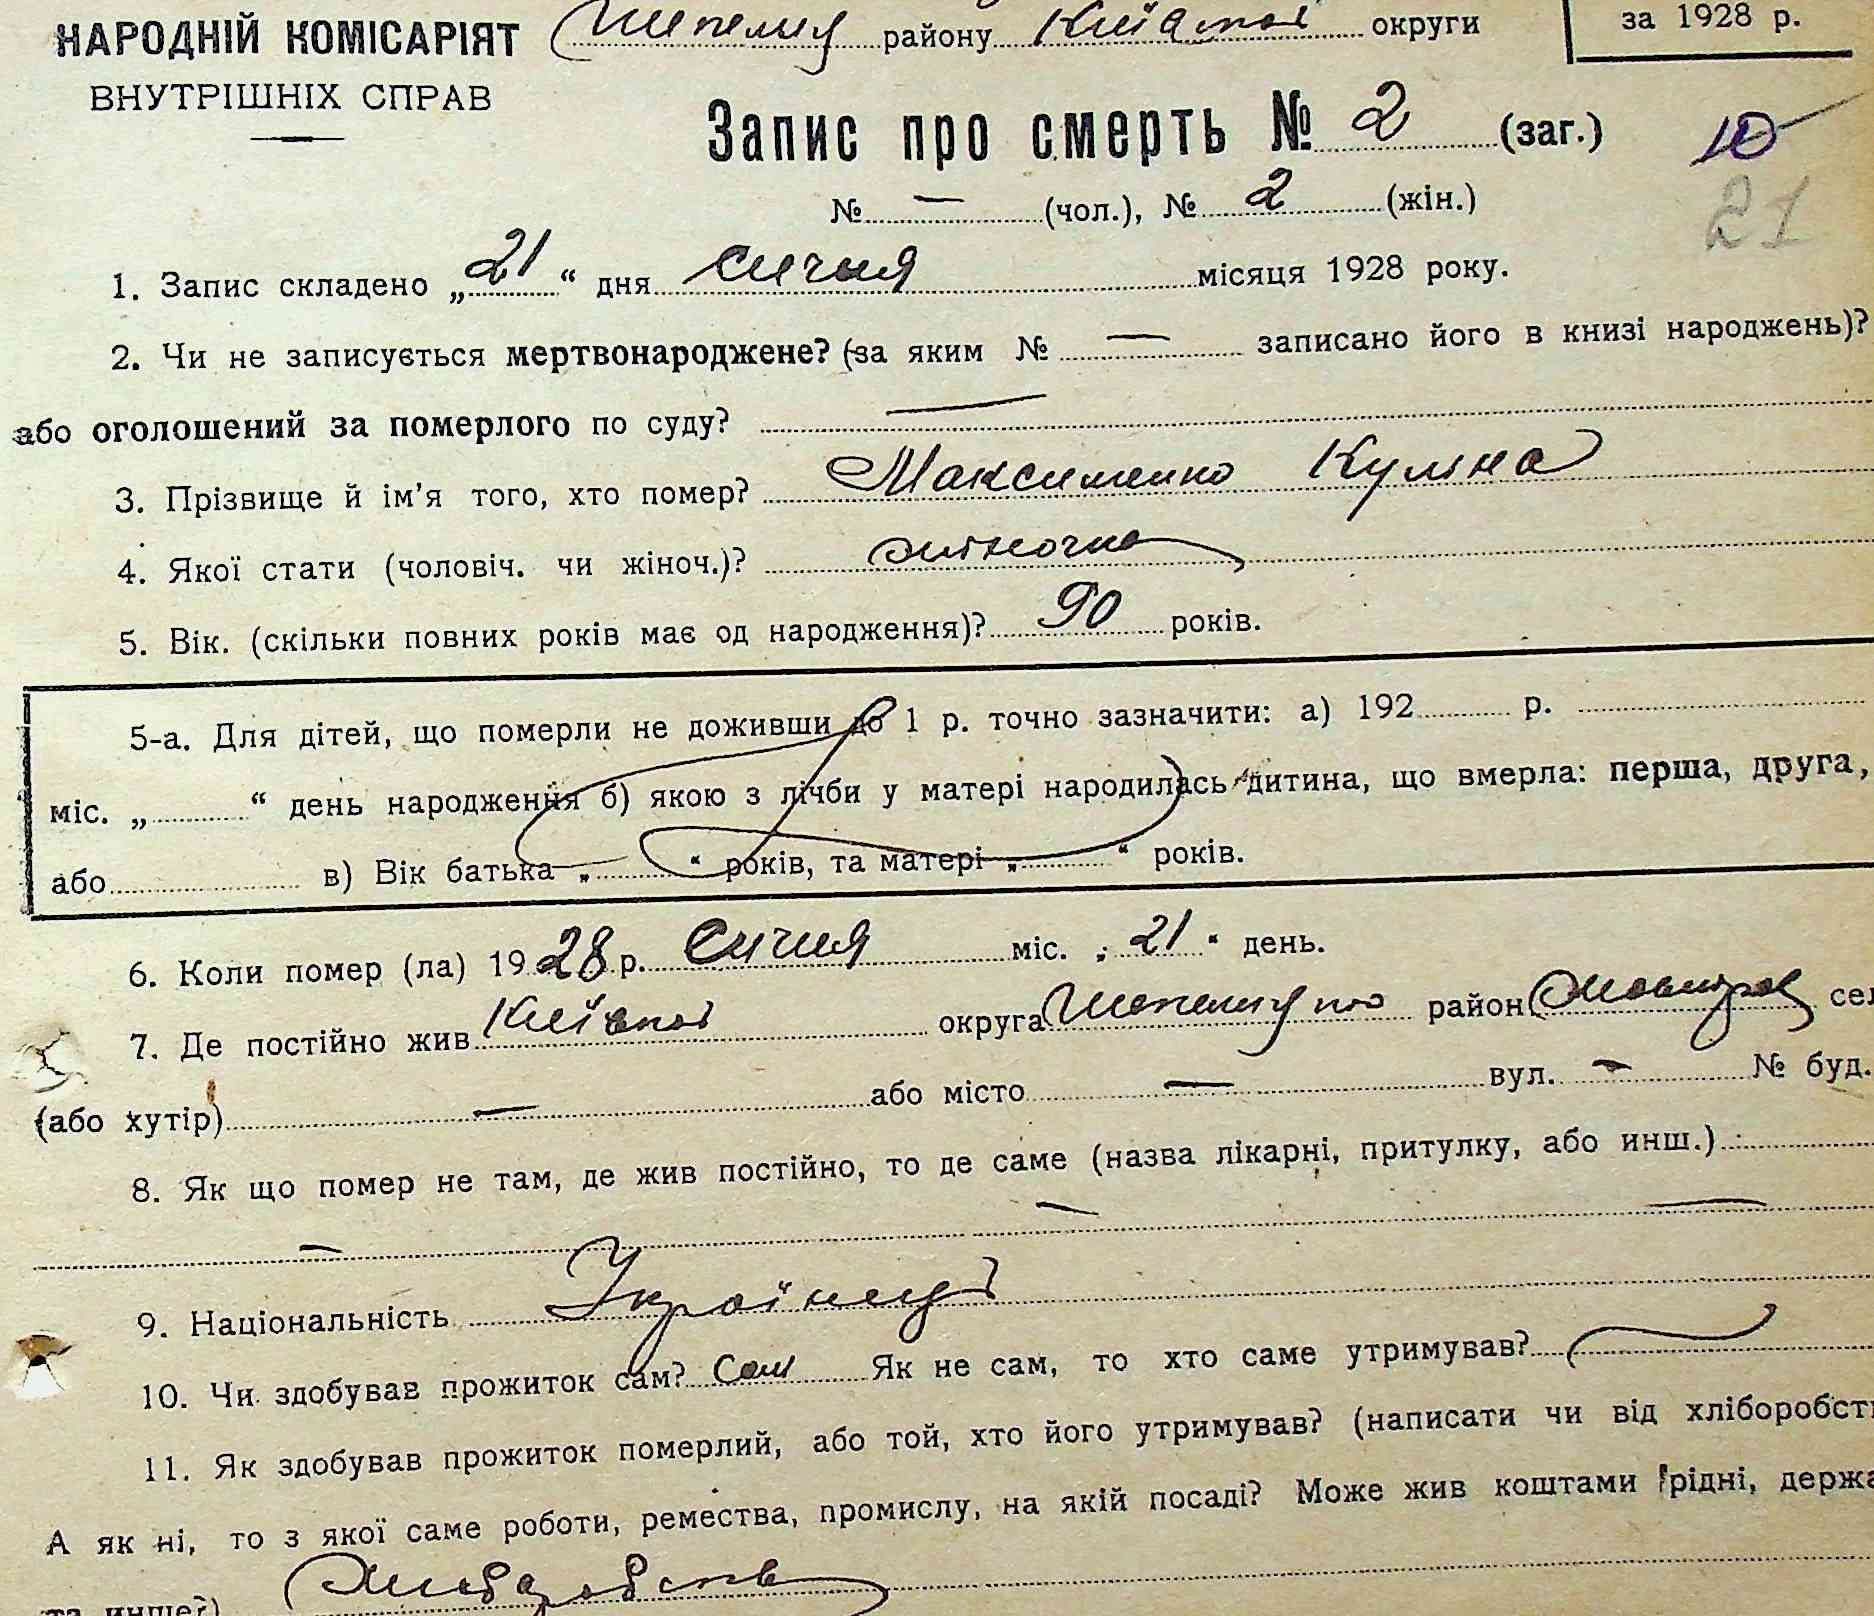 НАРОДНІЙ КОМІСАРІЯТ району Київської округи за 1928 р.
ВНУТРІШНІХ СПРАВ
Запис про смерть № 2 (заг.) 10
№ — (чол.), № 2 (жін.) 21
1. Запис складено „21“ дня січня місяця 1928 року.
2. Чи не записується мертвонароджене? (за яким № — записано його в книзі народжень)?
або оголошений за померлого по суду? —
3. Прізвище й ім'я того, хто помер? Максименко
4. Якої стати (чоловіч. чи жіноч.)? жіноча
5. Вік. (скільки повних років має од народження)? 90 років.
5-а. Для дітей, що померли не доживши до 1 р. точно зазначити: а) 192 р.
міс. „ “ день народження б) якою з лічби у матері народилась дитина, що вмерла: перша, друга,
або в) Вік батька „ “ років, та матері „ “ років.
6. Коли помер (ла) 1928 р. Січня міс. „21“ день.
7. Де постійно жив Київської округа район сел
(або хутір) — або місто — вул. — № буд.
8. Як що помер не там, де жив постійно, то де саме (назва лікарні, притулку, або инш.)
— — —
9. Національність Українці
10. Чи здобував прожиток сам? Сам Як не сам, то хто саме утримував?
11. Як здобував прожиток померлий, або той, хто його утримував? (написати чи від хліборобст
А як ні, то з якої саме роботи, ремества, промислу, на якій посаді? Може жив коштами рідні, держа
та инше?)